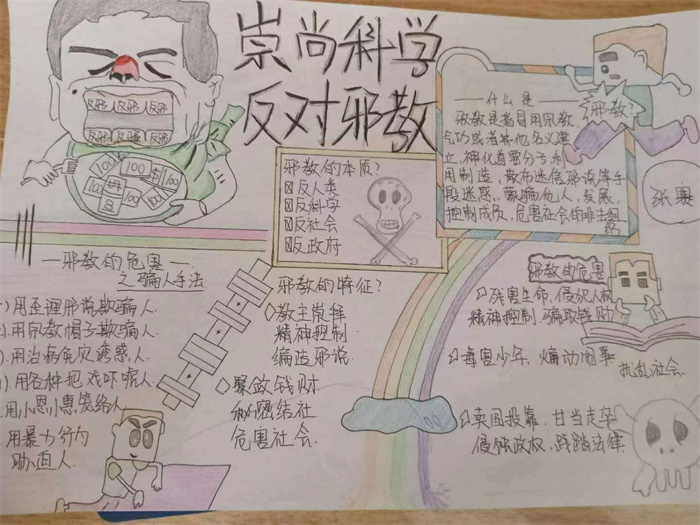 崇尚科学
反对邪教
反邪 反邪
100 $ 100
邪教的本质?
反人类
反科学
反社会
反政府
什么是
邪教?
邪教是指冒用宗教
气功或者其他名义建
立,神化首要分子利
用制造,散布迷信邪说等手
段迷惑、蒙骗他人,发展、
控制成员,危害社会的非法组
织
邪教的危害
之骗人手法
用歪理邪说欺骗人
用宗教帽子欺骗人
用治病免灾诱惑人
用各种把戏吓唬人
用小恩小惠笼络人
用暴力行为
胁迫人
邪教的特征?
教主崇拜
精神控制
编造邪说
聚敛钱财
秘密结社
危害社会
邪教的危害
残害生命,侵犯人权
精神控制,骗取钱财
毒害少年,煽动闹事
扰乱社会.
卖国投靠,甘当走卒
侵蚀政权,践踏法律